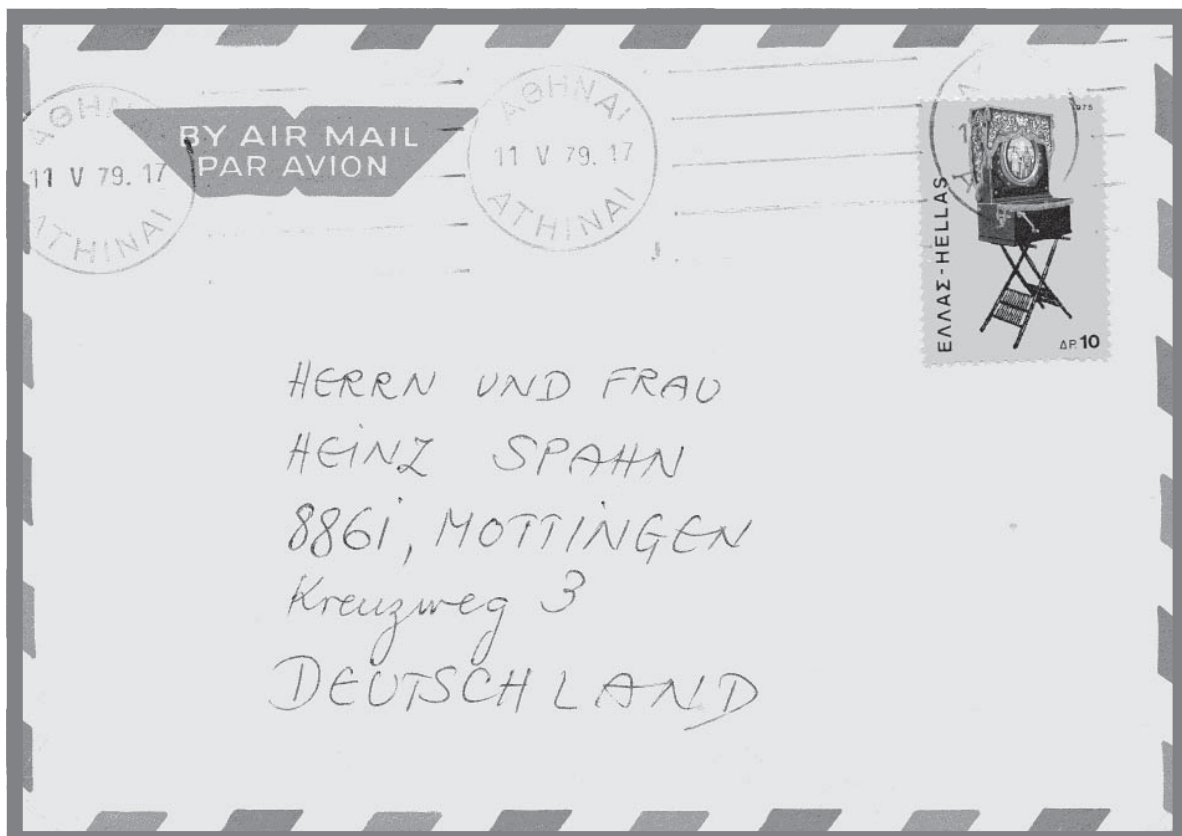 ΑΘΗΝΑΙ
11 V 79. 17
ATHINAI
BY AIR MAIL
PAR AVION
ΑΘΗΝΑΙ
11 V 79. 17
ATHINAI
1975
ΕΛΛΑΣ-HELLAS
ΔΡ. 10
HERRN UND FRAU
HEiNZ SPAHN
8861, MOTTiNGEN
Kreuzweg 3
DEUTSCHLAND